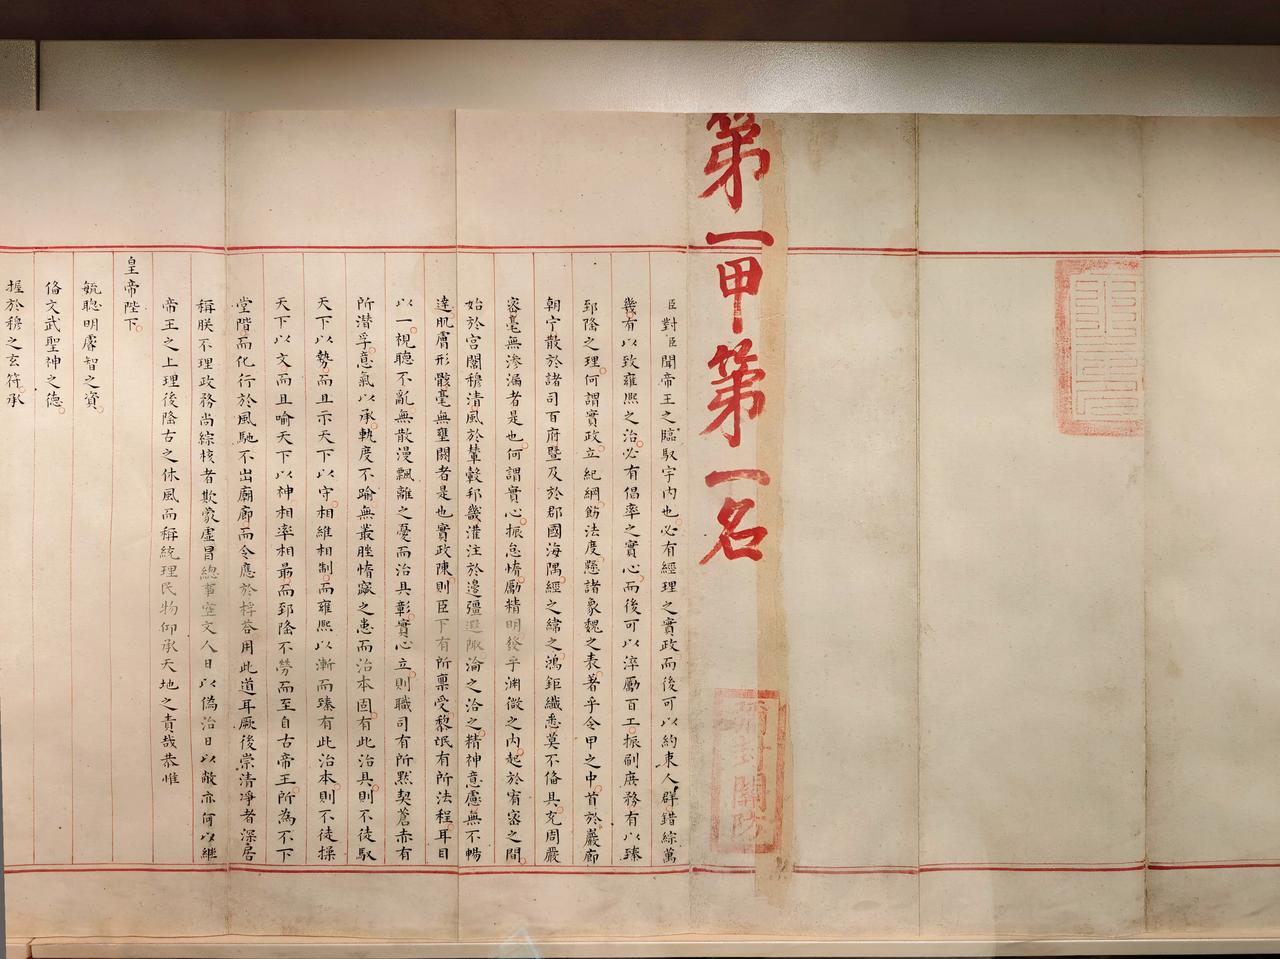 第一甲第一名
彌封關防
臣對臣聞帝王之臨馭宇內也必有經理之實政而後可以約束人群錯綜萬
幾有以致雍熙之治必有倡率之實心而後可以淬勵百工振刷庶務有以臻
郅隆之理何謂實政立紀綱飭法度懸諸象魏之表著乎令甲之中首於巖廊
朝宁散於諸司百府暨及於郡國海隅經之緯之鴻鉅纖悉莫不俻具充周嚴
密毫無滲漏者是也何謂實心振怠惰勵精明發乎淵微之內起於宥密之間
始於宮闈穆清風於輦轂邦畿灌注於邊疆遐陬淪之洽之精神意慮無不暢
達肌膚形骸毫無壅閼者是也實政陳則臣下有所稟受黎氓有所法程耳目
以一視聽不亂無散漫飄離之憂而治具彰實心立則職司有所默契蒼赤有
所潛孚意氣以承軌度不踰無叢脞惰窳之患而治本固有此治具則不徒馭
天下以勢而且示天下以守相維相制而雍熙以漸而臻有此治本則不徒操
天下以文而且喻天下以神相率相最而郅隆不勞而至自古帝王所為不下
堂階而化行於風馳不出廟廊而令應於桴荅用此道耳厥後崇清凈者深居
稱朕不理政務尚綜核者欺蒙虛冒總事空文人日以偽治日以敝亦何以継
帝王之上理後隆古之休風而稱統理民物仰承天地之責哉恭惟
皇帝陛下
毓聰明睿智之資
俻文武聖神之德
握於穆之玄符承